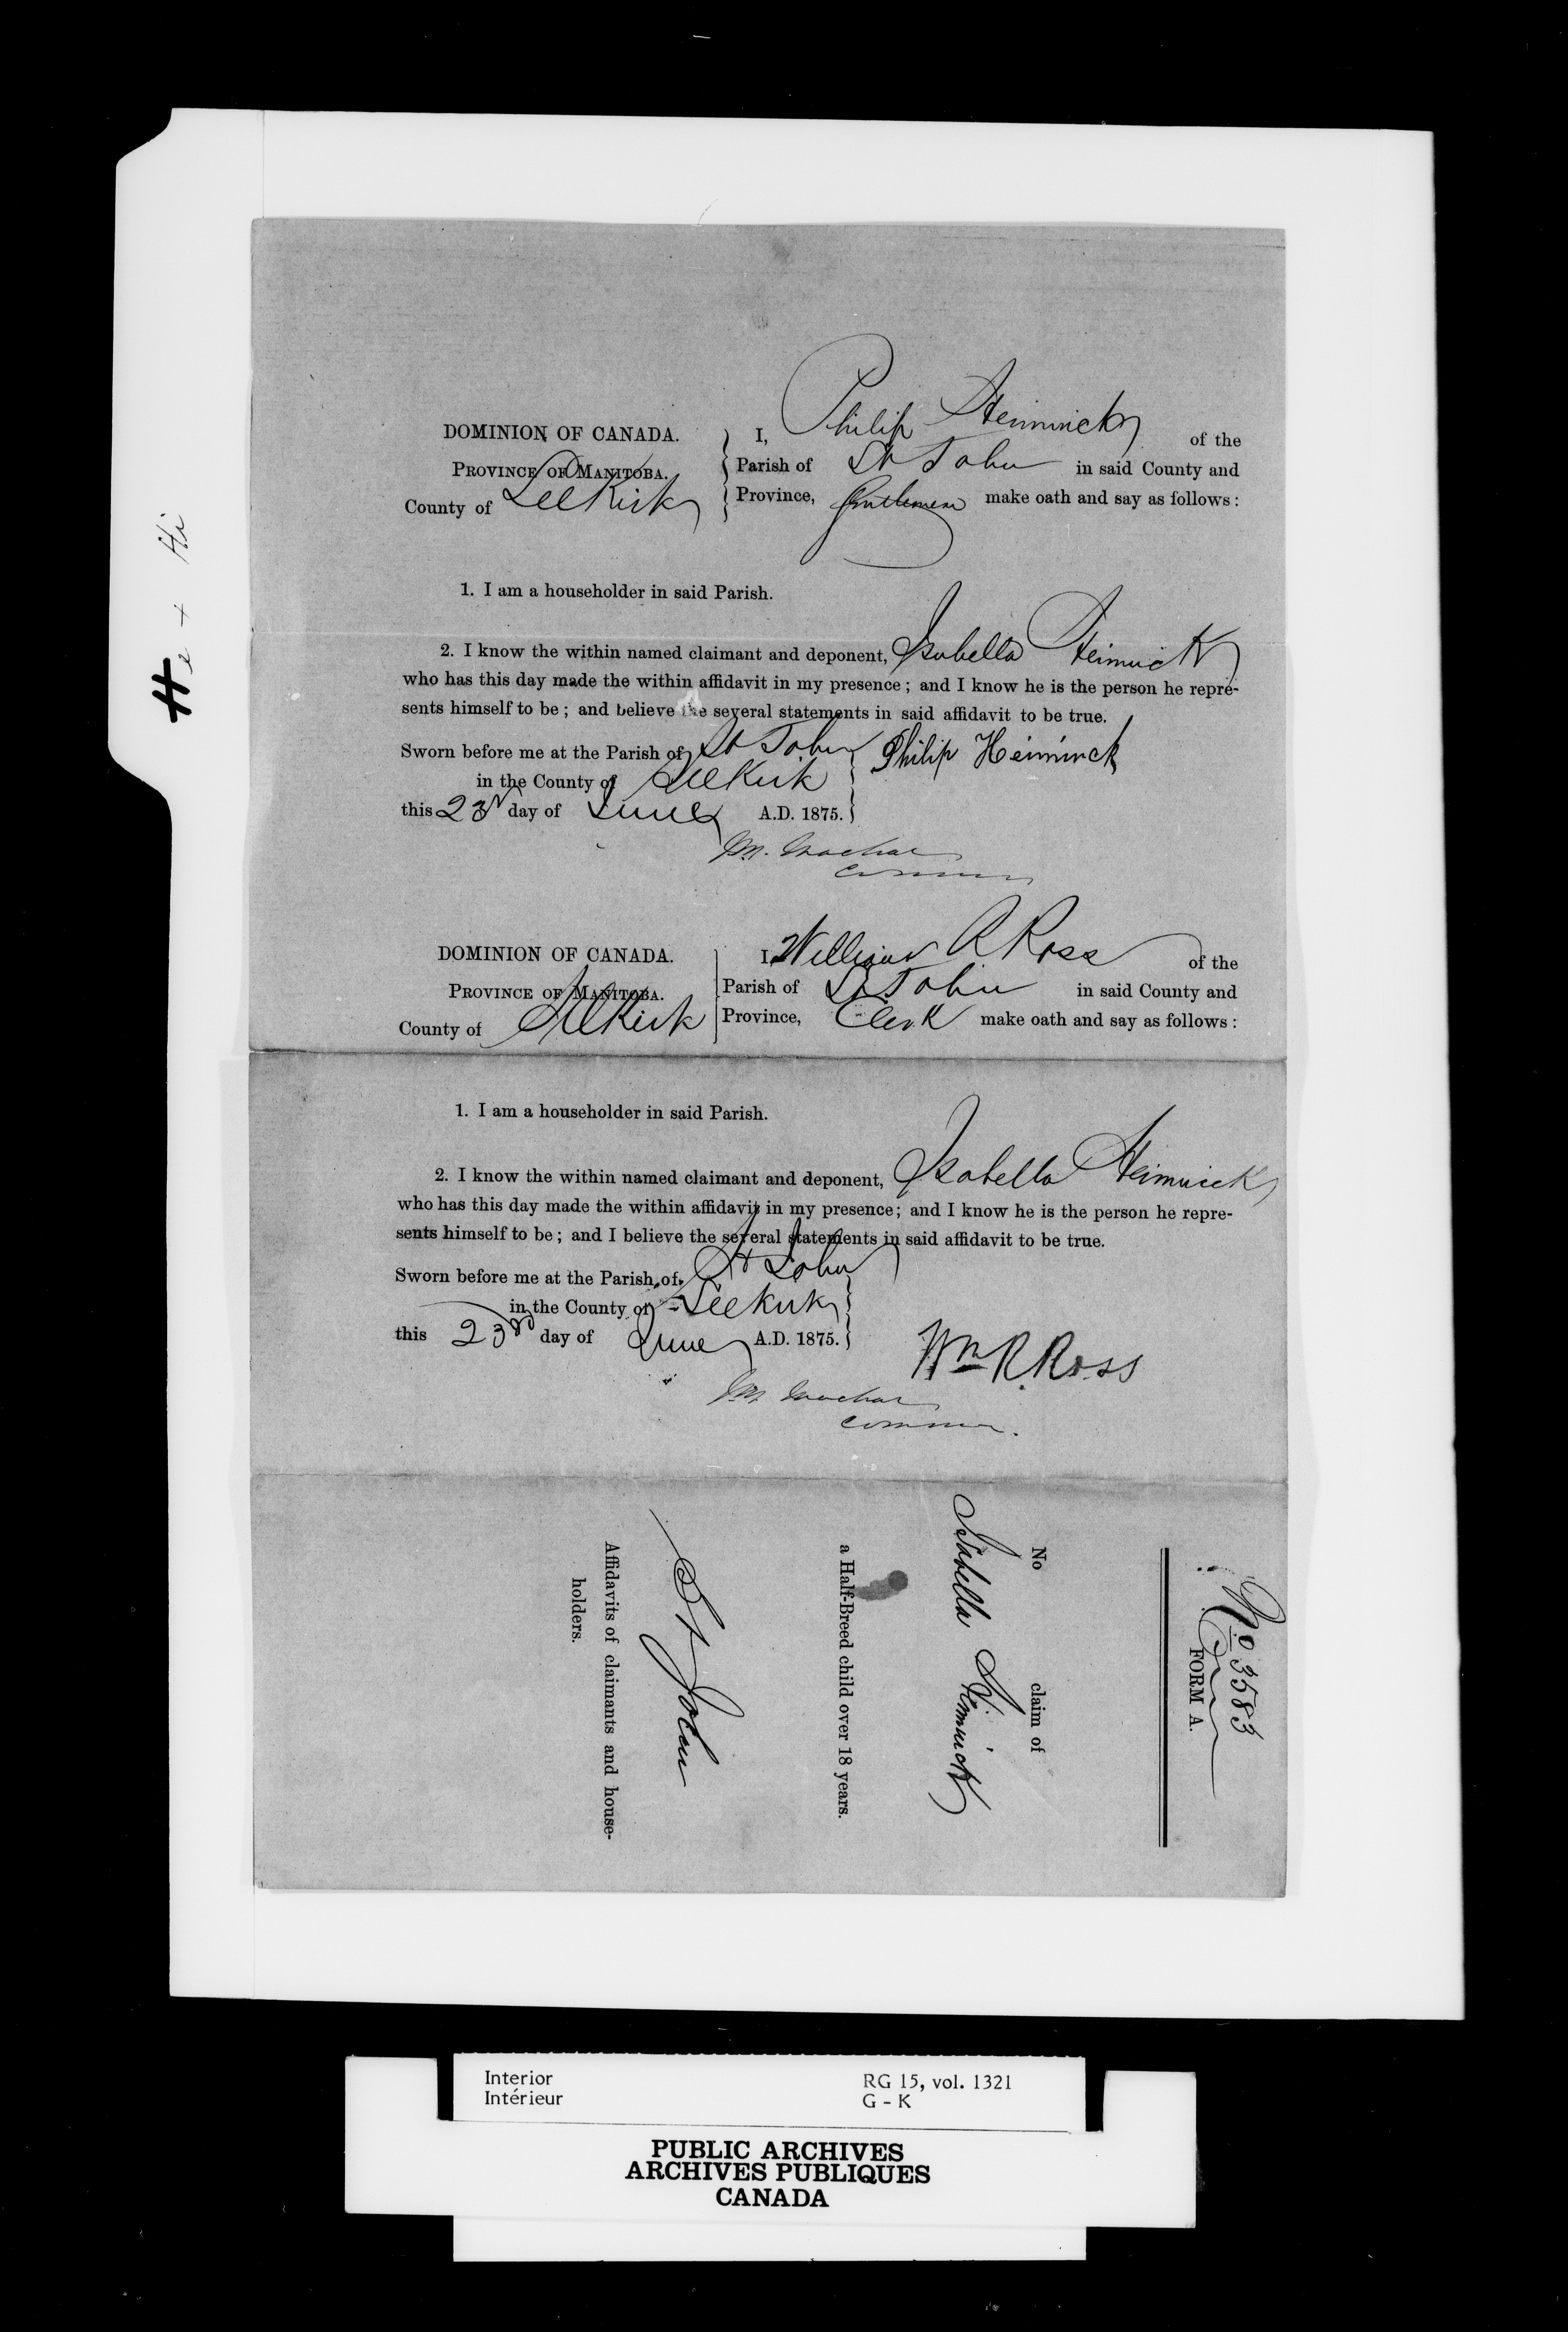 He + Hi
DOMINION OF CANADA.
PROVINCE OF MANITOBA.
County of Selkirk
I, Philip Heiminck of the
Parish of St John in said County and
Province, Gentleman make oath and say as follows:
1. I am a householder in said Parish.
2. I know the within named claimant and deponent, Isabella Heiminck
who has this day made the within affidavit in my presence; and I know he is the person he repre-
sents himself to be; and believe the several statements in said affidavit to be true.
Sworn before me at the Parish of St John
in the County of Selkirk
this 23rd day of June A.D. 1875.
Philip Heiminck
DOMINION OF CANADA.
PROVINCE OF MANITOBA.
County of Selkirk
I, William R Ross of the
Parish of St John in said County and
Province, Clerk make oath and say as follows:
1. I am a householder in said Parish.
2. I know the within named claimant and deponent, Isabella Heiminck
who has this day made the within affidavit in my presence; and I know he is the person he repre-
sents himself to be; and I believe the several statements in said affidavit to be true.
Sworn before me at the Parish of St John
in the County of Selkirk
this 23rd day of June A.D. 1875.
Wm R Ross
No 3583
FORM A.
No claim of
Isabella Heiminck
a Half-Breed child over 18 years.
St John
Affidavits of claimants and house-
holders.
Interior
Intérieur
RG 15, vol. 1321
G - K
PUBLIC ARCHIVES
ARCHIVES PUBLIQUES
CANADA